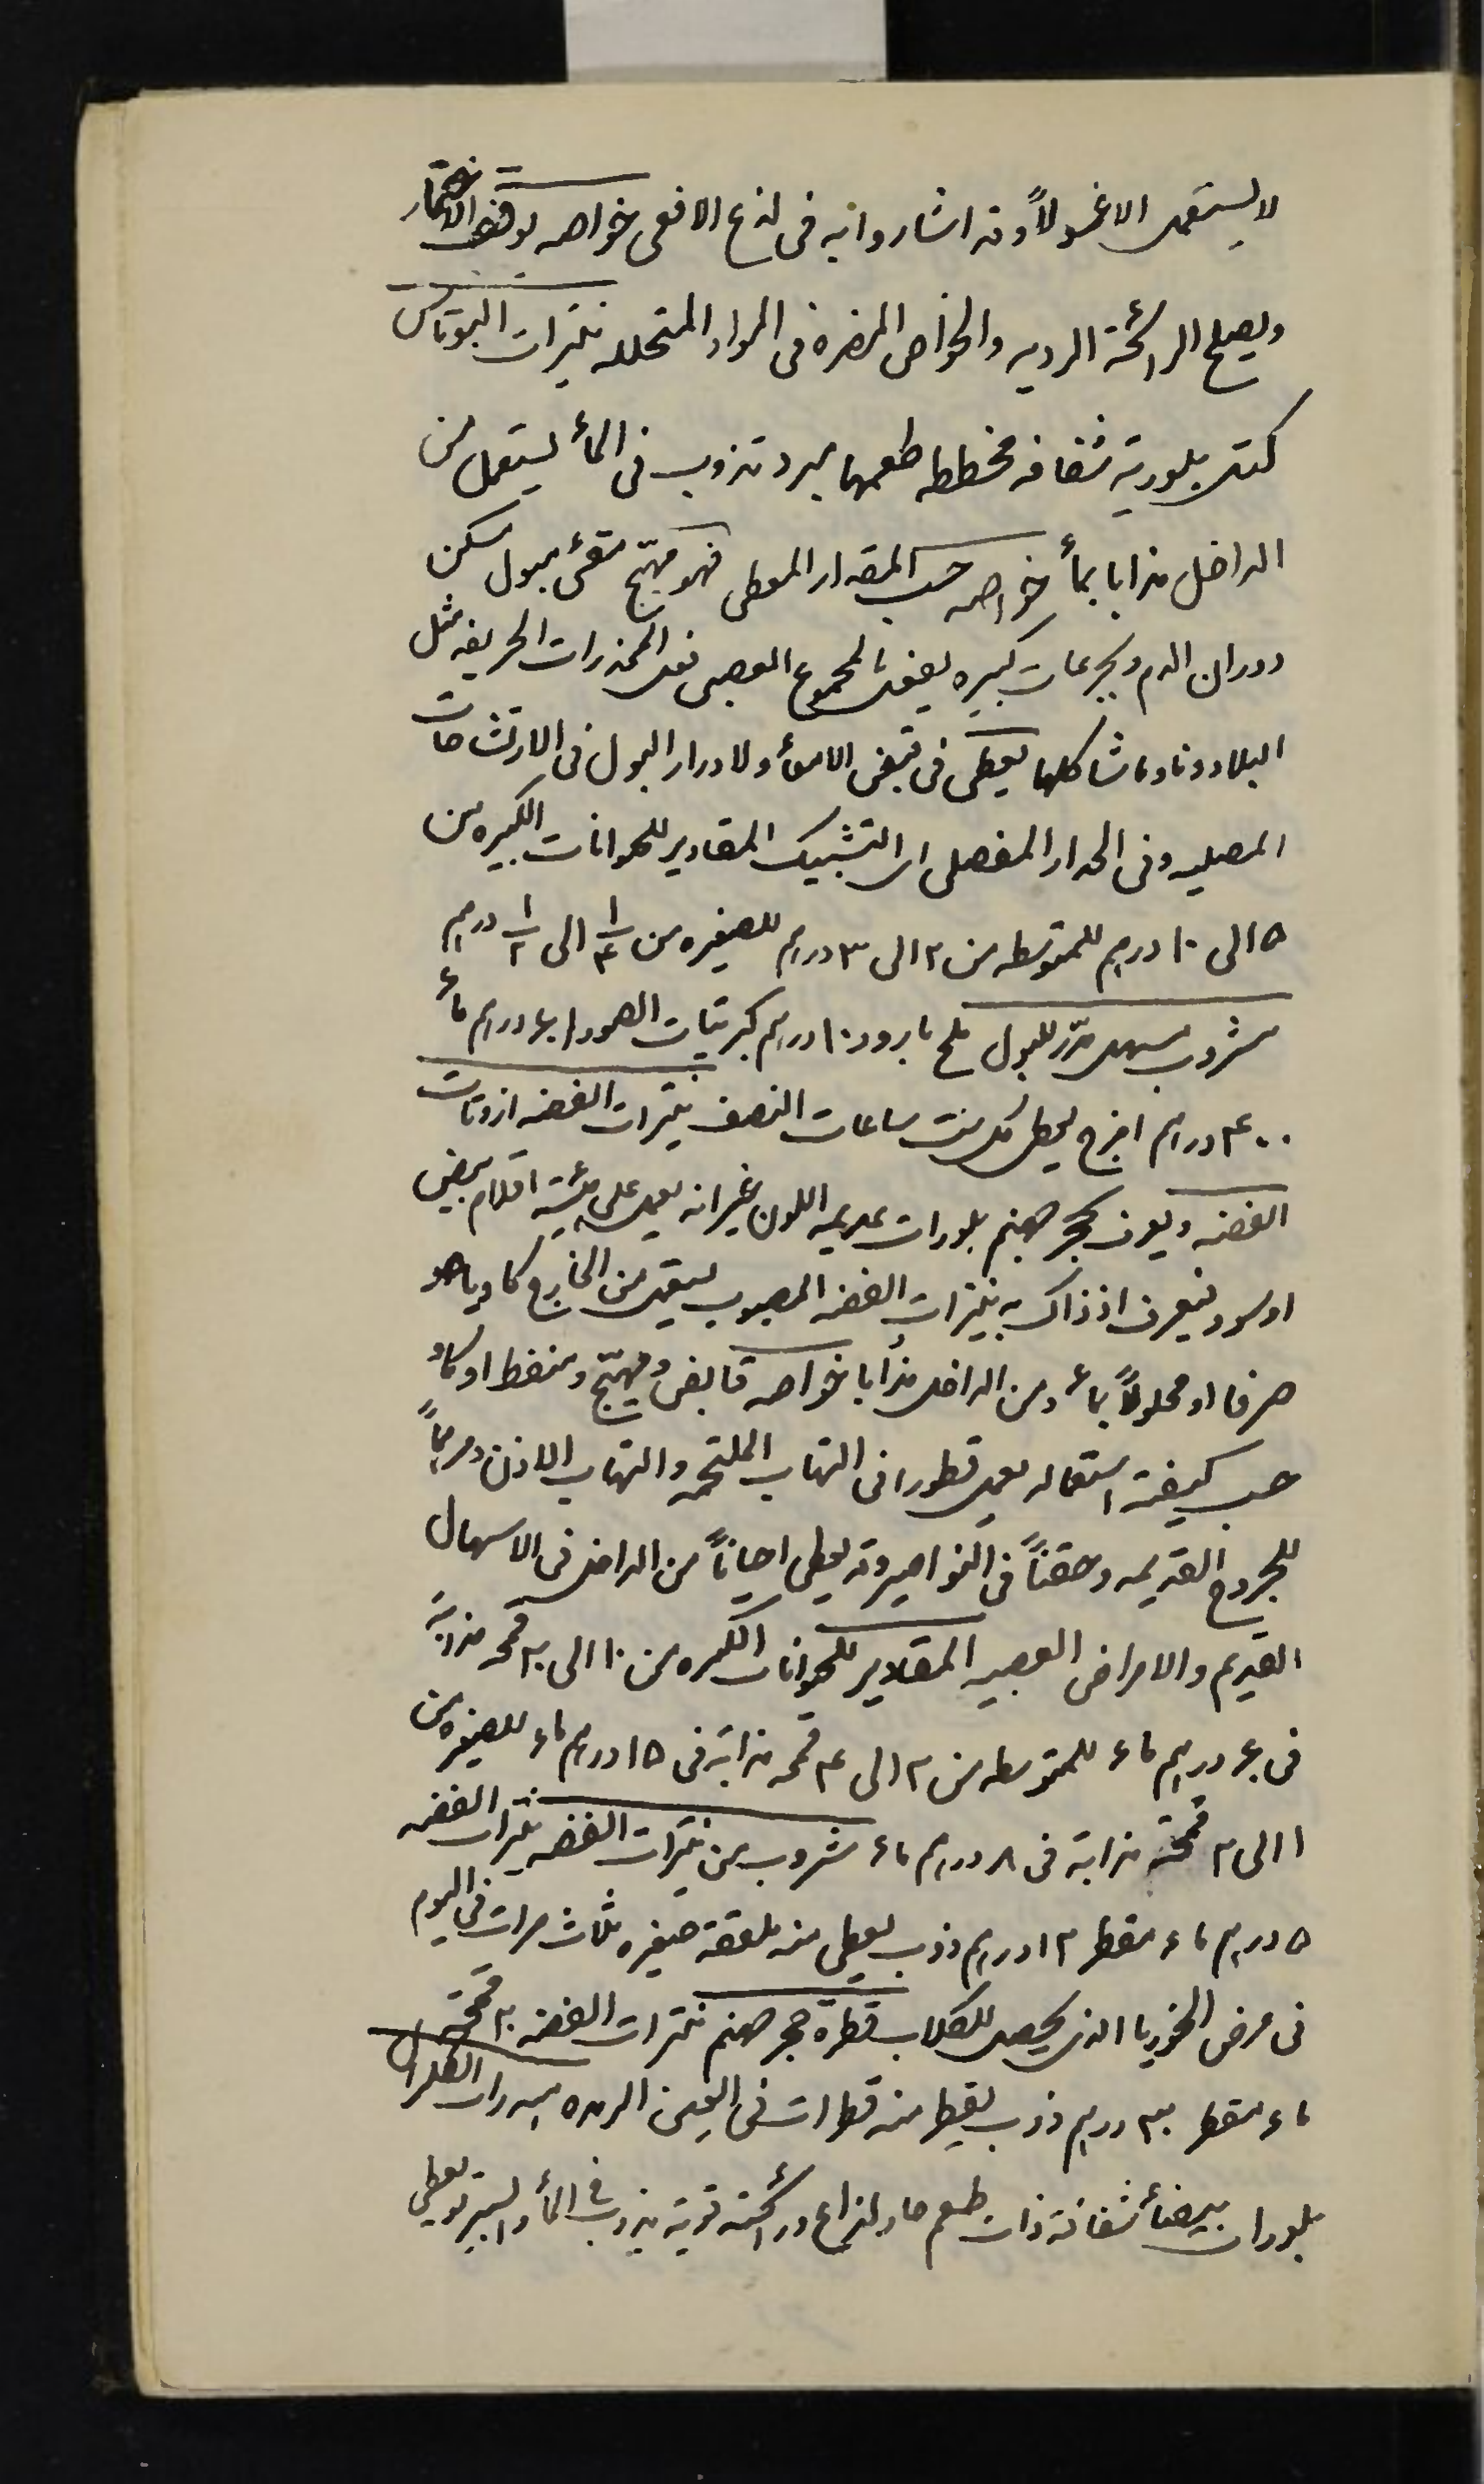 لا يستعمل الا غسولاً وقد اشاروا به فى لذع الافعى خواصه يوقف الاختمار
ويصلح الرائحة الرديه والخواص المضره فى المواد المتحلله نيترات البوتاس
كتل بلورية شفافه مخططه طعمها يبرد تذوب فى المأ يستعمل من
الداخل مذابا بمأ خواصه حسب المقدار المعطى فهو مهيّج مقئ مبول مسكن
دوران الدم وبجرعات كبيره يفعل بالمجموع العصبى فعل المخدرات الحريفه مثل
البلادونا وما شاكلها يعطى فى قبض الامعأ ولادرار البول فى الارتشاحات
المصليه وفى الحدار المفصلى اى التشبيك المقادير للحيوانات الكبيره من
٥ الى ١٠ درهم للمتوسطه من ٢ الى ٣ درهم للصغيره من ١/٤ الى ١/٢ درهم
مشروب مسهل مدّر للبول ملح بارود ١٠ درهم كبريتات الصودا ٤٠ درهم مأ
٤٠٠ درهم امزج يعطى كل ست ساعات النصف نيترات الفضه ازوتات
الفضه ويعرف بحجر جهنم بلورات عديمه اللون غير انه يعمل على هيئة اقلام بيض
او سود فيعرف اذ ذاك به نيترات الفضه المصبوب يستعمل من الخارج كاويا هو
صرفا او محلولاً بماء ومن الداخل مذابا خواصه قابض ومهيّج ومنفط او كاو
حسب كيفية استعماله يعمل قطورا فى التهاب الملتحمه والتهاب الاذن ومرهماً
للجروح القديمه وحقناً فى النواصير وقد يعطى احياناً من الداخل فى الاسهال
القديم والامراض العصبيه المقادير للحيوانات الكبيره من ١٠ الى ٢٠ قمحه مذابة
فى ٤٠ درهم ماء للمتوسطه من ٢ الى ٤ قمحه مذابة فى ١٥ درهم ماء للصغيره من
١ الى ٢ قمحة مذابة فى ٨ درهم ماء مشروب من نيترات الفضه نيترات الفضه
٥ درهم ماء مقطر ١٢ درهم ذوب يعطى منه ملعقة صغيره ثلاث مرات فى اليوم
فى مرض الخوريا الذى يحصل للكلاب قطرة حجر جهنم نيترات الفضه ٢٠ قمحة
ماء مقطر ٣٠ درهم ذوب يقطر منه قطرات فى العين الرمده ايدرات الكلورال
بلورات بيضأ شفافة ذات طعم حار لذاع ورائحته قوية يذوب فى المأ والسبيرتو يعطى